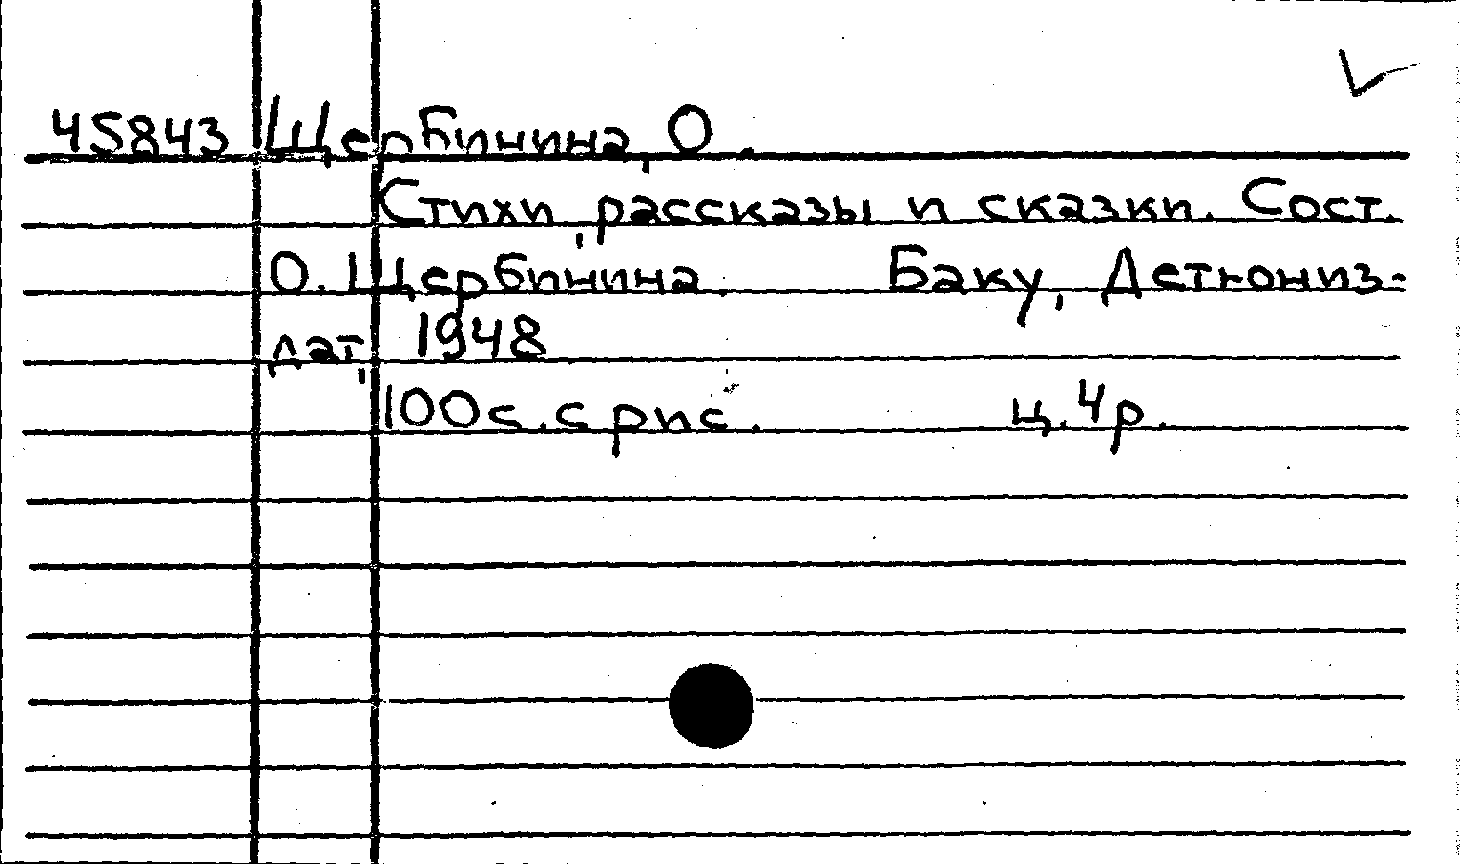 45843 Щербинина, О.
Стихи, рассказы и сказки. Сост.
О. Щербинина. Баку, Детюниз-
дат, 1948
100 с. с рис. ц. 4 р.